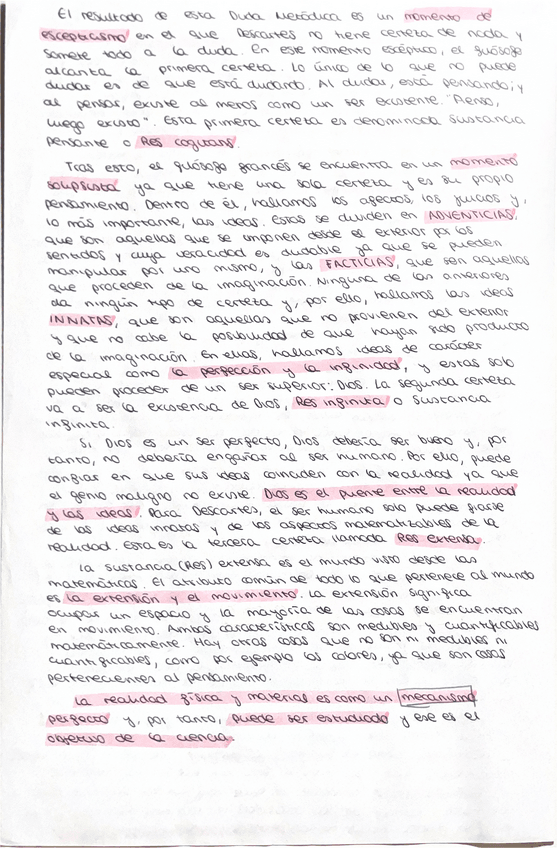 El resultado de esta Duda Metódica es un momento de
escepticismo en el que Descartes no tiene certeza de nada y
somete todo a la duda. En este momento escéptico, el filósofo
alcanza la primera certeza. Lo único de lo que no puede
dudar es de que está dudando. Al dudar, está pensando; y
al pensar, existe al menos como un ser existente. "Pienso,
luego existo". Esta primera certeza es denominada sustancia
pensante o Res cogitans.
Tras esto, el filósofo francés se encuentra en un momento
solipsista ya que tiene una sola certeza y es su propio
pensamiento. Dentro de él, hallamos los afectos, los juicios y,
lo más importante, las ideas. Estas se dividen en ADVENTICIAS,
que son aquellas que se imponen desde el exterior por los
sentidos y cuya veracidad es dudable ya que se pueden
manipular por uno mismo, y las FACTICIAS, que son aquellas
que proceden de la imaginación. Ninguna de las anteriores
da ningún tipo de certeza y, por ello, hallamos las ideas
INNATAS, que son aquellas que no provienen del exterior
y que no cabe la posibilidad de que hayan sido producto
de la imaginación. En ellas, hallamos ideas de carácter
especial como la perfección y la infinidad, y estas solo
pueden proceder de un ser superior: Dios. La segunda certeza
va a ser la existencia de Dios, Res infinita o sustancia
infinita.
Si Dios es un ser perfecto, Dios debería ser bueno y, por
tanto, no debería engañar al ser humano. Por ello, puede
confiar en que sus ideas coinciden con la realidad ya que
el genio maligno no existe. Dios es el puente entre la realidad
y las ideas. Para Descartes, el ser humano solo puede fiarse
de las ideas innatas y de los aspectos matematizables de la
realidad. Esta es la tercera certeza llamada Res extensa.
La sustancia (Res) extensa es el mundo visto desde las
matemáticas. El atributo común de todo lo que pertenece al mundo
es la extensión y el movimiento. La extensión significa
ocupar un espacio y la mayoría de las cosas se encuentran
en movimiento. Ambas características son medibles y cuantificables
matemáticamente. Hay otras cosas que no son ni medibles ni
cuantificables, como por ejemplo los colores, ya que son cosas
pertenecientes al pensamiento.
La realidad física y material es como un mecanismo
perfecto y, por tanto, puede ser estudiado y ese es el
objetivo de la ciencia.